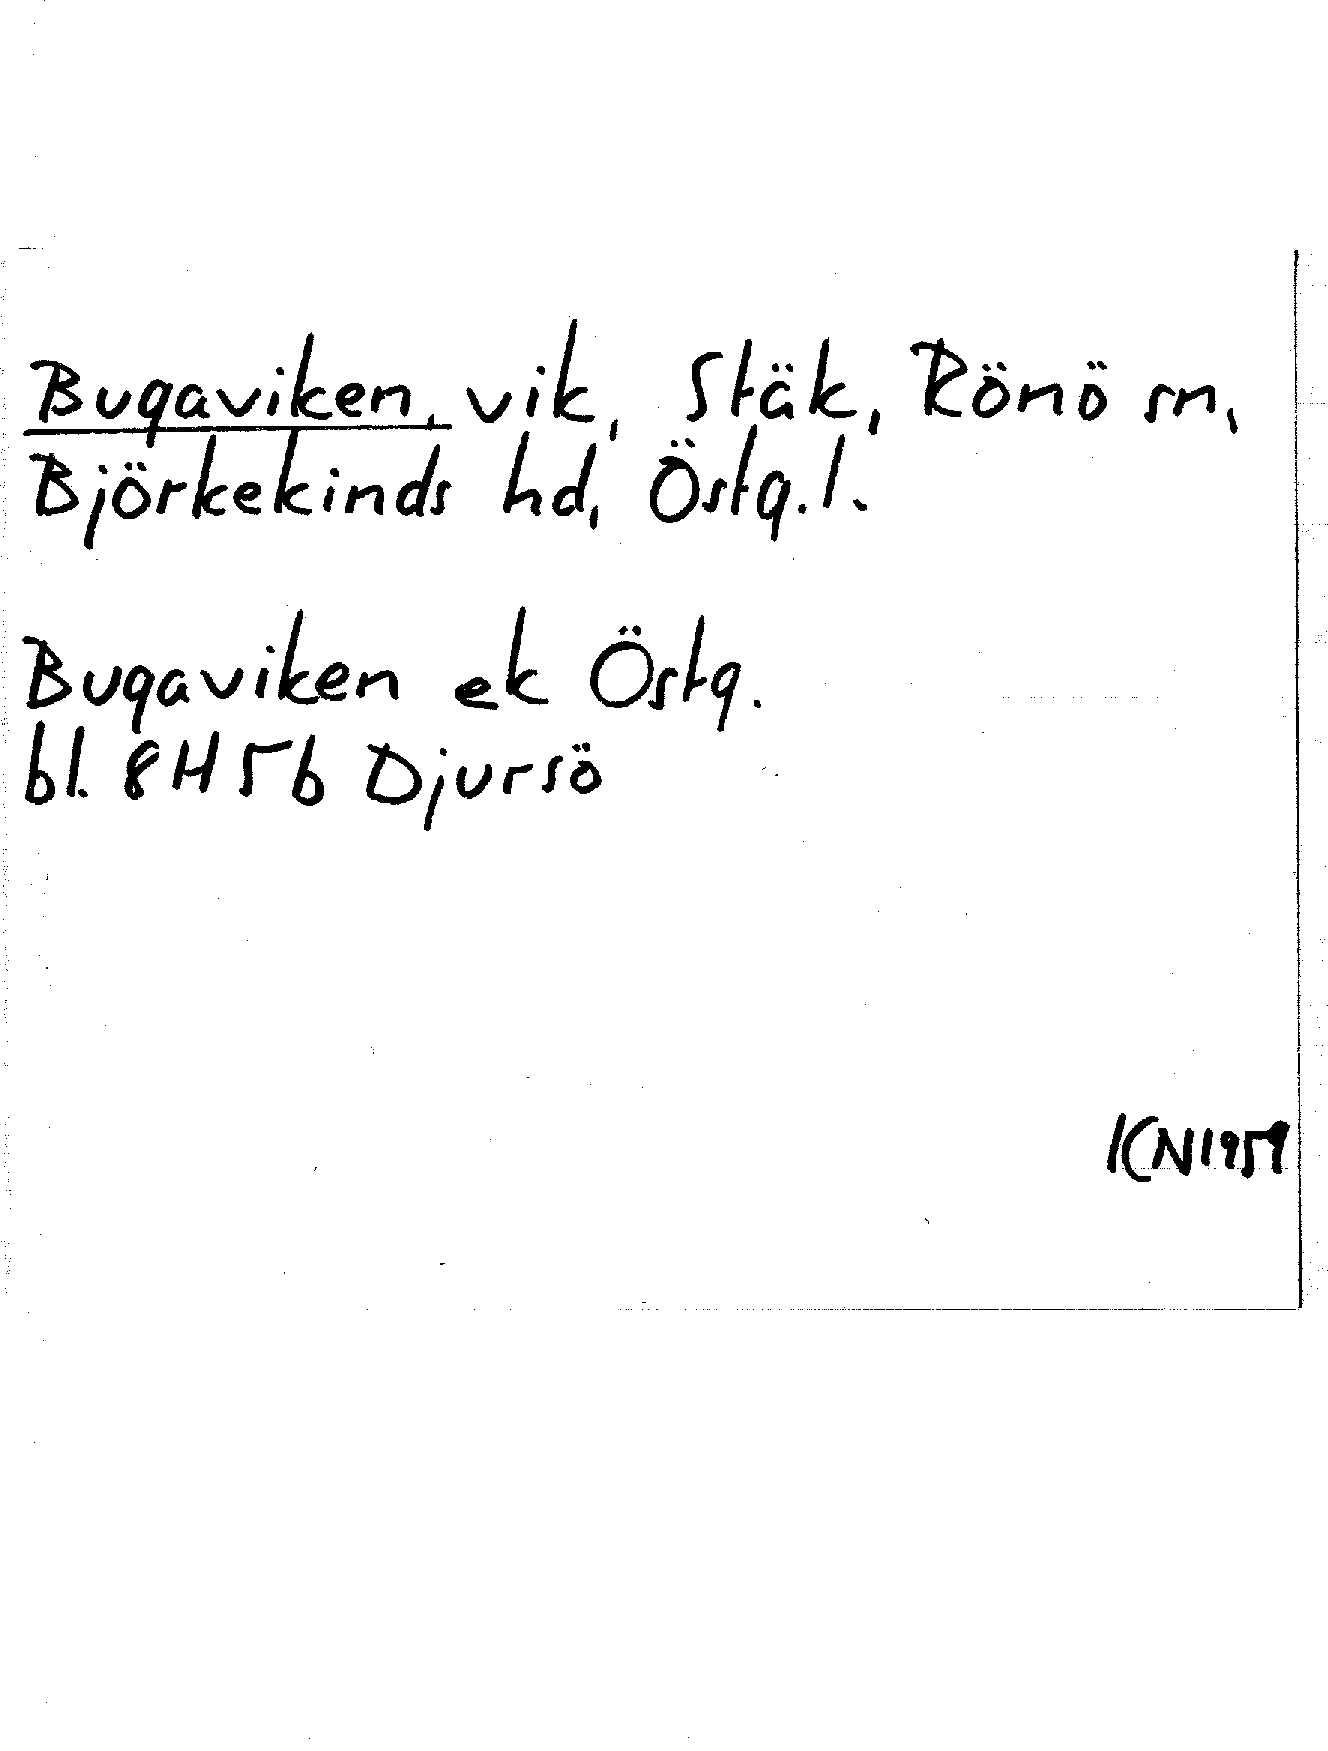 Bugaviken, vik, Stäk, Rönö sn,
Björkekinds hd, Östg.l.
Bugaviken ek Östg.
bl. 8H5b Djursö
KN1959